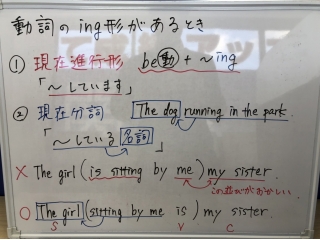 動詞のing形があるとき
① 現在進行形 be動 + ~ing
「~しています」
② 現在分詞 The dog running in the park.
「~している名詞」
× The girl (is sitting by me) my sister.
この並びがおかしい
○ The girl (sitting by me is) my sister.
S V C